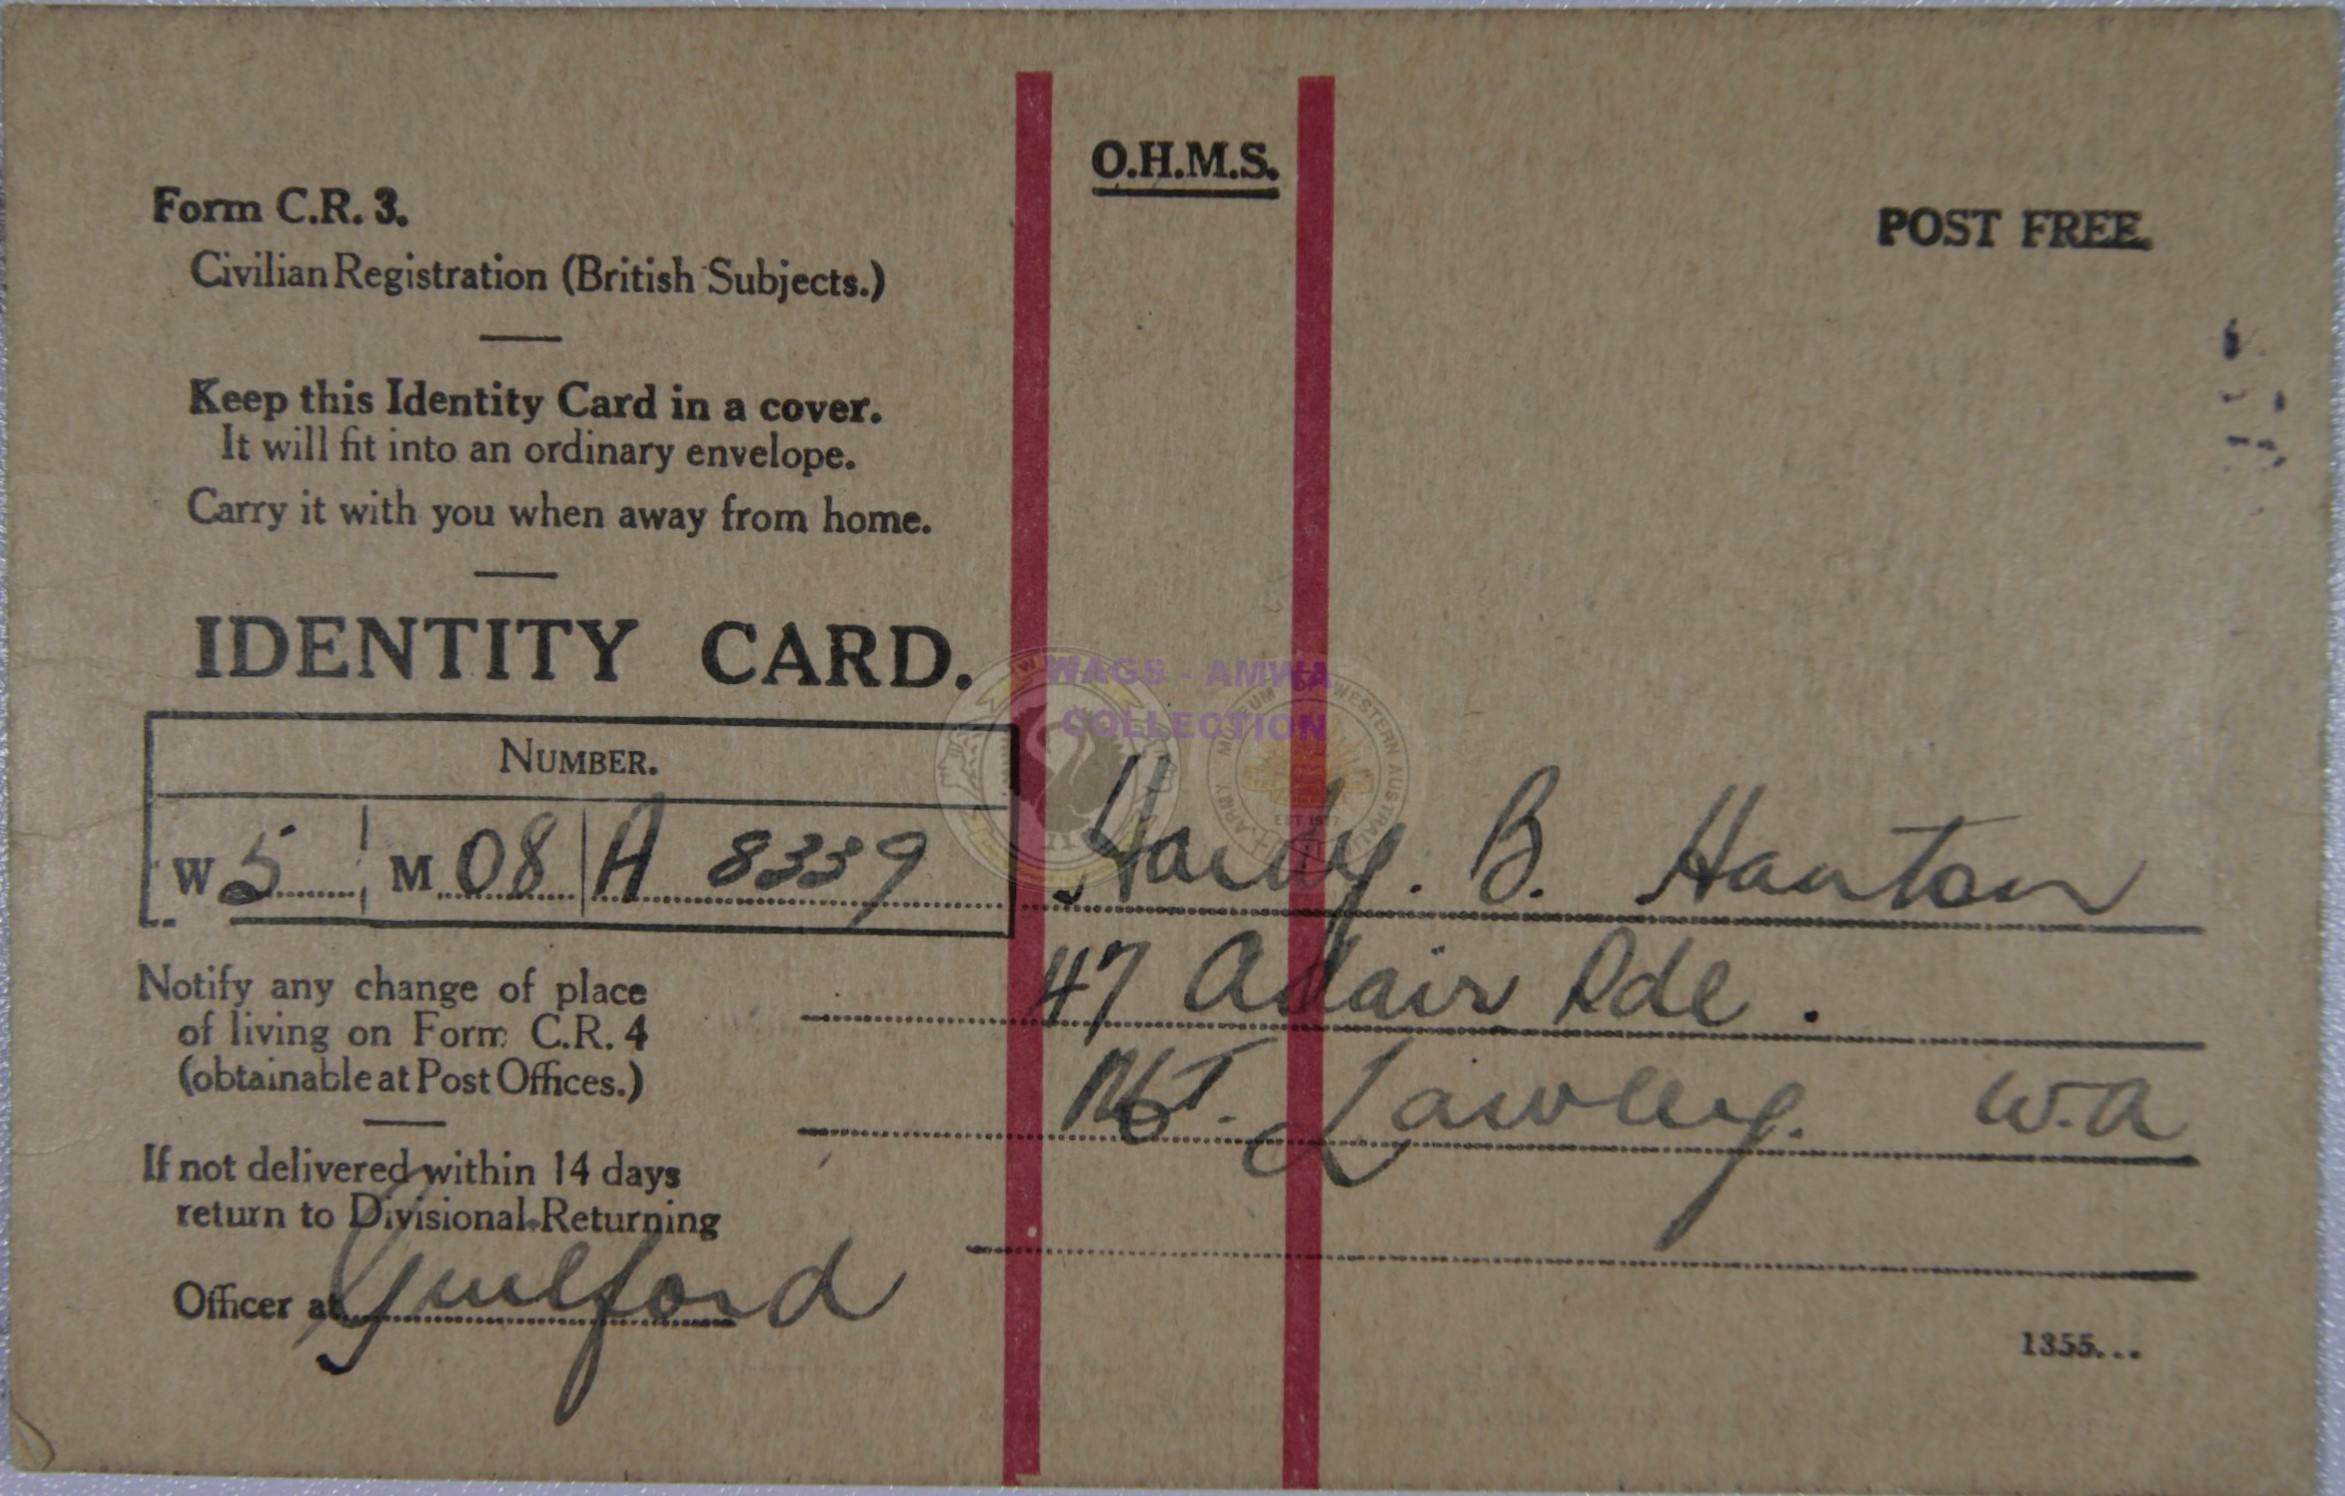 O.H.M.S.
Form C.R. 3.
POST FREE.
Civilian Registration (British Subjects.)
Keep this Identity Card in a cover.
It will fit into an ordinary envelope.
Carry it with you when away from home.
IDENTITY CARD.
WAGS - AMWA
COLLECTION
NUMBER.
W 5 M 08 A 8339
Hardy. B. Hanton
47 Adair Rde.
Mt. Lawley. W.A
Notify any change of place
of living on Form C.R. 4
(obtainable at Post Offices.)
If not delivered within 14 days
return to Divisional Returning
Officer at Guilford
1355...